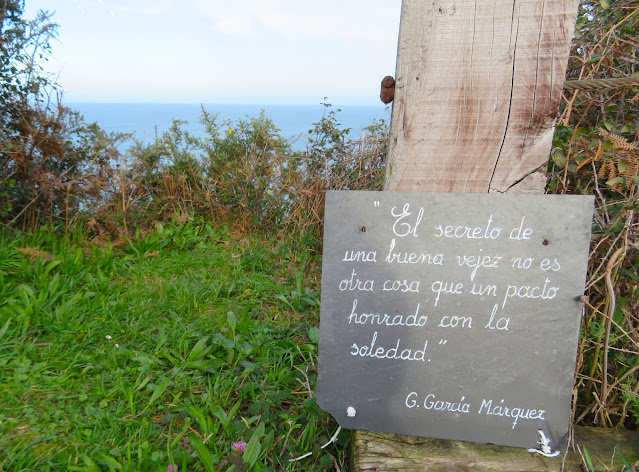 "El secreto de
una buena vejez no es
otra cosa que un pacto
honrado con la
soledad."
G. García Márquez